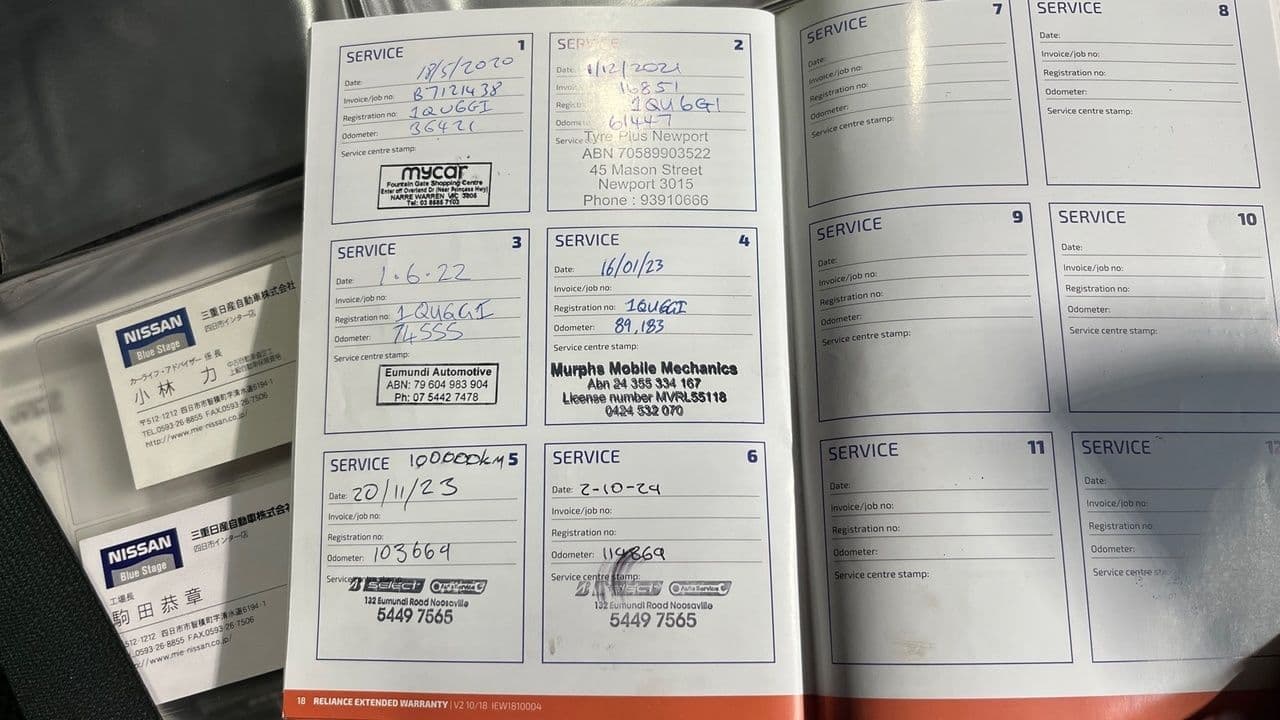 SERVICE 1
Date: 18/5/2020
Invoice/job no: B7121438
Registration no: 1QU6GI
Odometer: 36421
Service centre stamp:
mycar
Fountain Gate Shopping Centre
Enter off Overland Dr (Near Princess Hwy)
NARRE WARREN VIC 3805
Tel: 03 8585 7103
SERVICE 2
Date: 1/12/2021
Invoi 16851
Registr 1QU6GI
Odome 61447
Service
Tyre Plus Newport
ABN 70589903522
45 Mason Street
Newport 3015
Phone : 93910666
SERVICE 3
Date: 1.6.22
Invoice/job no:
Registration no: 1QU6GI
Odometer: 74555
Service centre stamp:
Eumundi Automotive
ABN: 79 604 983 904
Ph: 07 5442 7478
SERVICE 4
Date: 16/01/23
Invoice/job no:
Registration no: 1QU6GI
Odometer: 89,183
Service centre stamp:
Murphs Mobile Mechanics
Abn 24 355 334 167
License number MVRL55118
0424 532 070
SERVICE 100000km 5
Date: 20/11/23
Invoice/job no:
Registration no:
Odometer: 103669
Service
SELECT
132 Eumundi Road Noosaville
5449 7565
SERVICE 6
Date: 2-10-24
Invoice/job no:
Registration no:
Odometer: 114869
Service centre stamp:
Auto Service
132 Eumundi Road Noosaville
5449 7565
18 RELIANCE EXTENDED WARRANTY | V2 10/18 IEW1810004
SERVICE 7
Date:
Invoice/job no:
Registration no:
Odometer:
Service centre stamp:
SERVICE 8
Date:
Invoice/job no:
Registration no:
Odometer:
Service centre stamp:
SERVICE 9
Date:
Invoice/job no:
Registration no:
Odometer:
Service centre stamp:
SERVICE 10
Date:
Invoice/job no:
Registration no:
Odometer:
Service centre stamp:
SERVICE 11
Date:
Invoice/job no:
Registration no:
Odometer:
Service centre stamp:
SERVICE 12
Date:
Invoice/job no:
Registration no:
Odometer:
Service centre sta
NISSAN
Blue Stage
三重日産自動車株式会社
四日市インター店
カーライフ・アドバイザー 係長
小林 力
〒512-1212 四日市市智積町字清水道6194-1
TEL.0593-26-8855 FAX.0593-26-7506
http://www.mie-nissan.co.jp/
NISSAN
Blue Stage
三重日産自動車株式会
四日市インター店
工場長
駒田恭章
512-1212 四日市市智積町字清水道6194-1
L.0593-26-8855 FAX.0593-26-7506
://www.mie-nissan.co.jp/